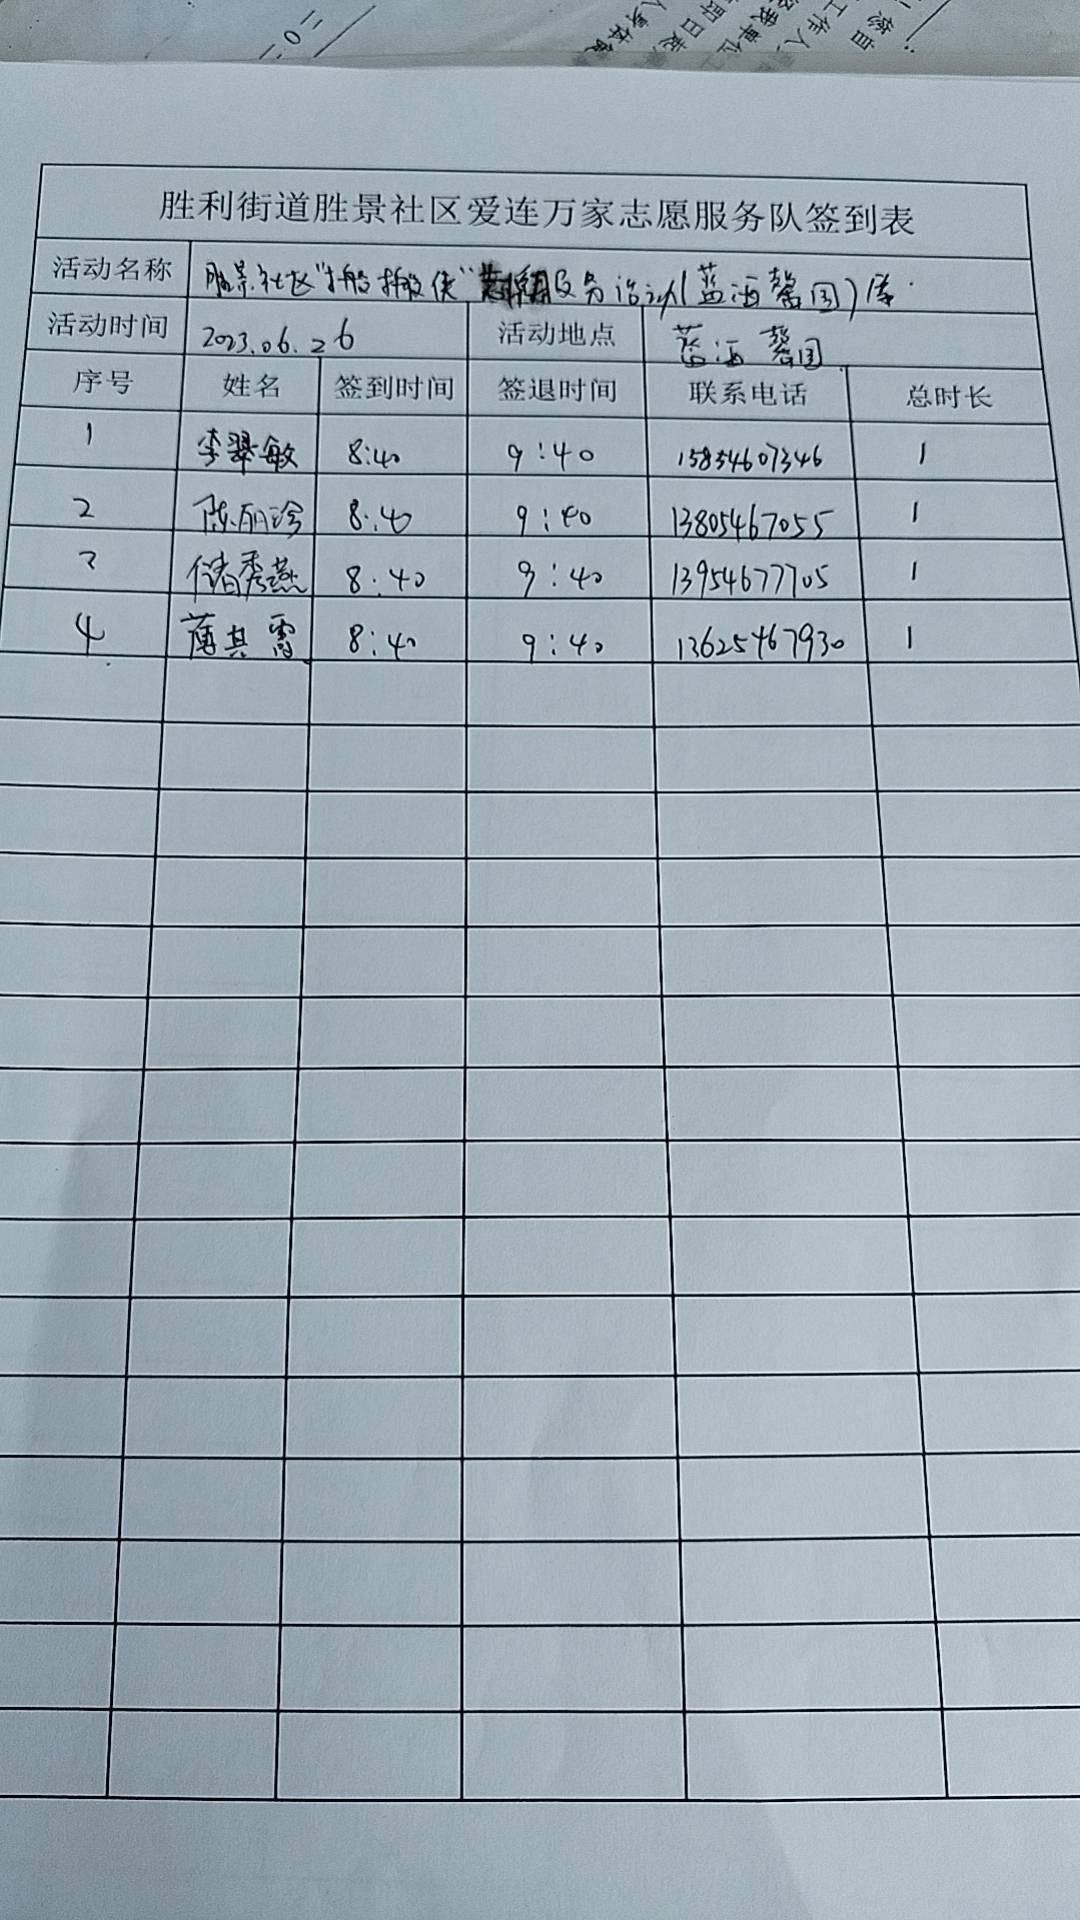 二〇二
胜利街道胜景社区爱连万家志愿服务队签到表
活动名称 胜景社区" 服务活动(蓝海馨园)
活动时间 2023.06.26 活动地点 蓝海馨园
序号 姓名 签到时间 签退时间 联系电话 总时长
1 李翠敏 8:40 9:40 15854607346 1
2 陈丽珍 8:40 9:40 13805467055 1
3 储秀燕 8:40 9:40 13954677705 1
4 其雷 8:40 9:40 13625467930 1